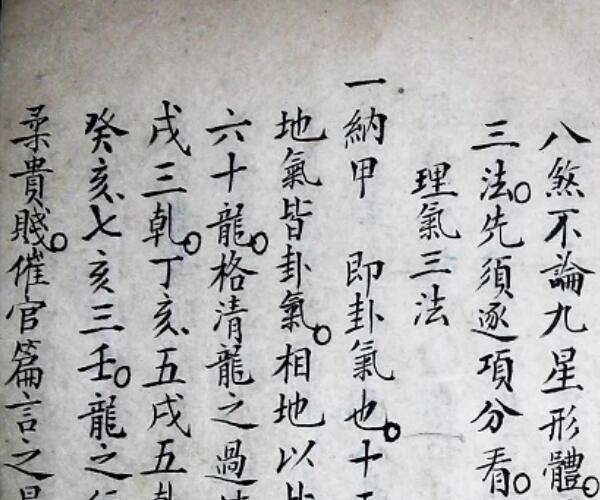 八煞不論九星形體。
三法。先須逐項分看。
理氣三法
一納甲　即卦氣也。十
地氣皆卦氣。相地以
六十龍。格清龍之過
戌三乹。丁亥五戌五
癸亥七亥三壬。龍之
柔貴賤。催官篇言之